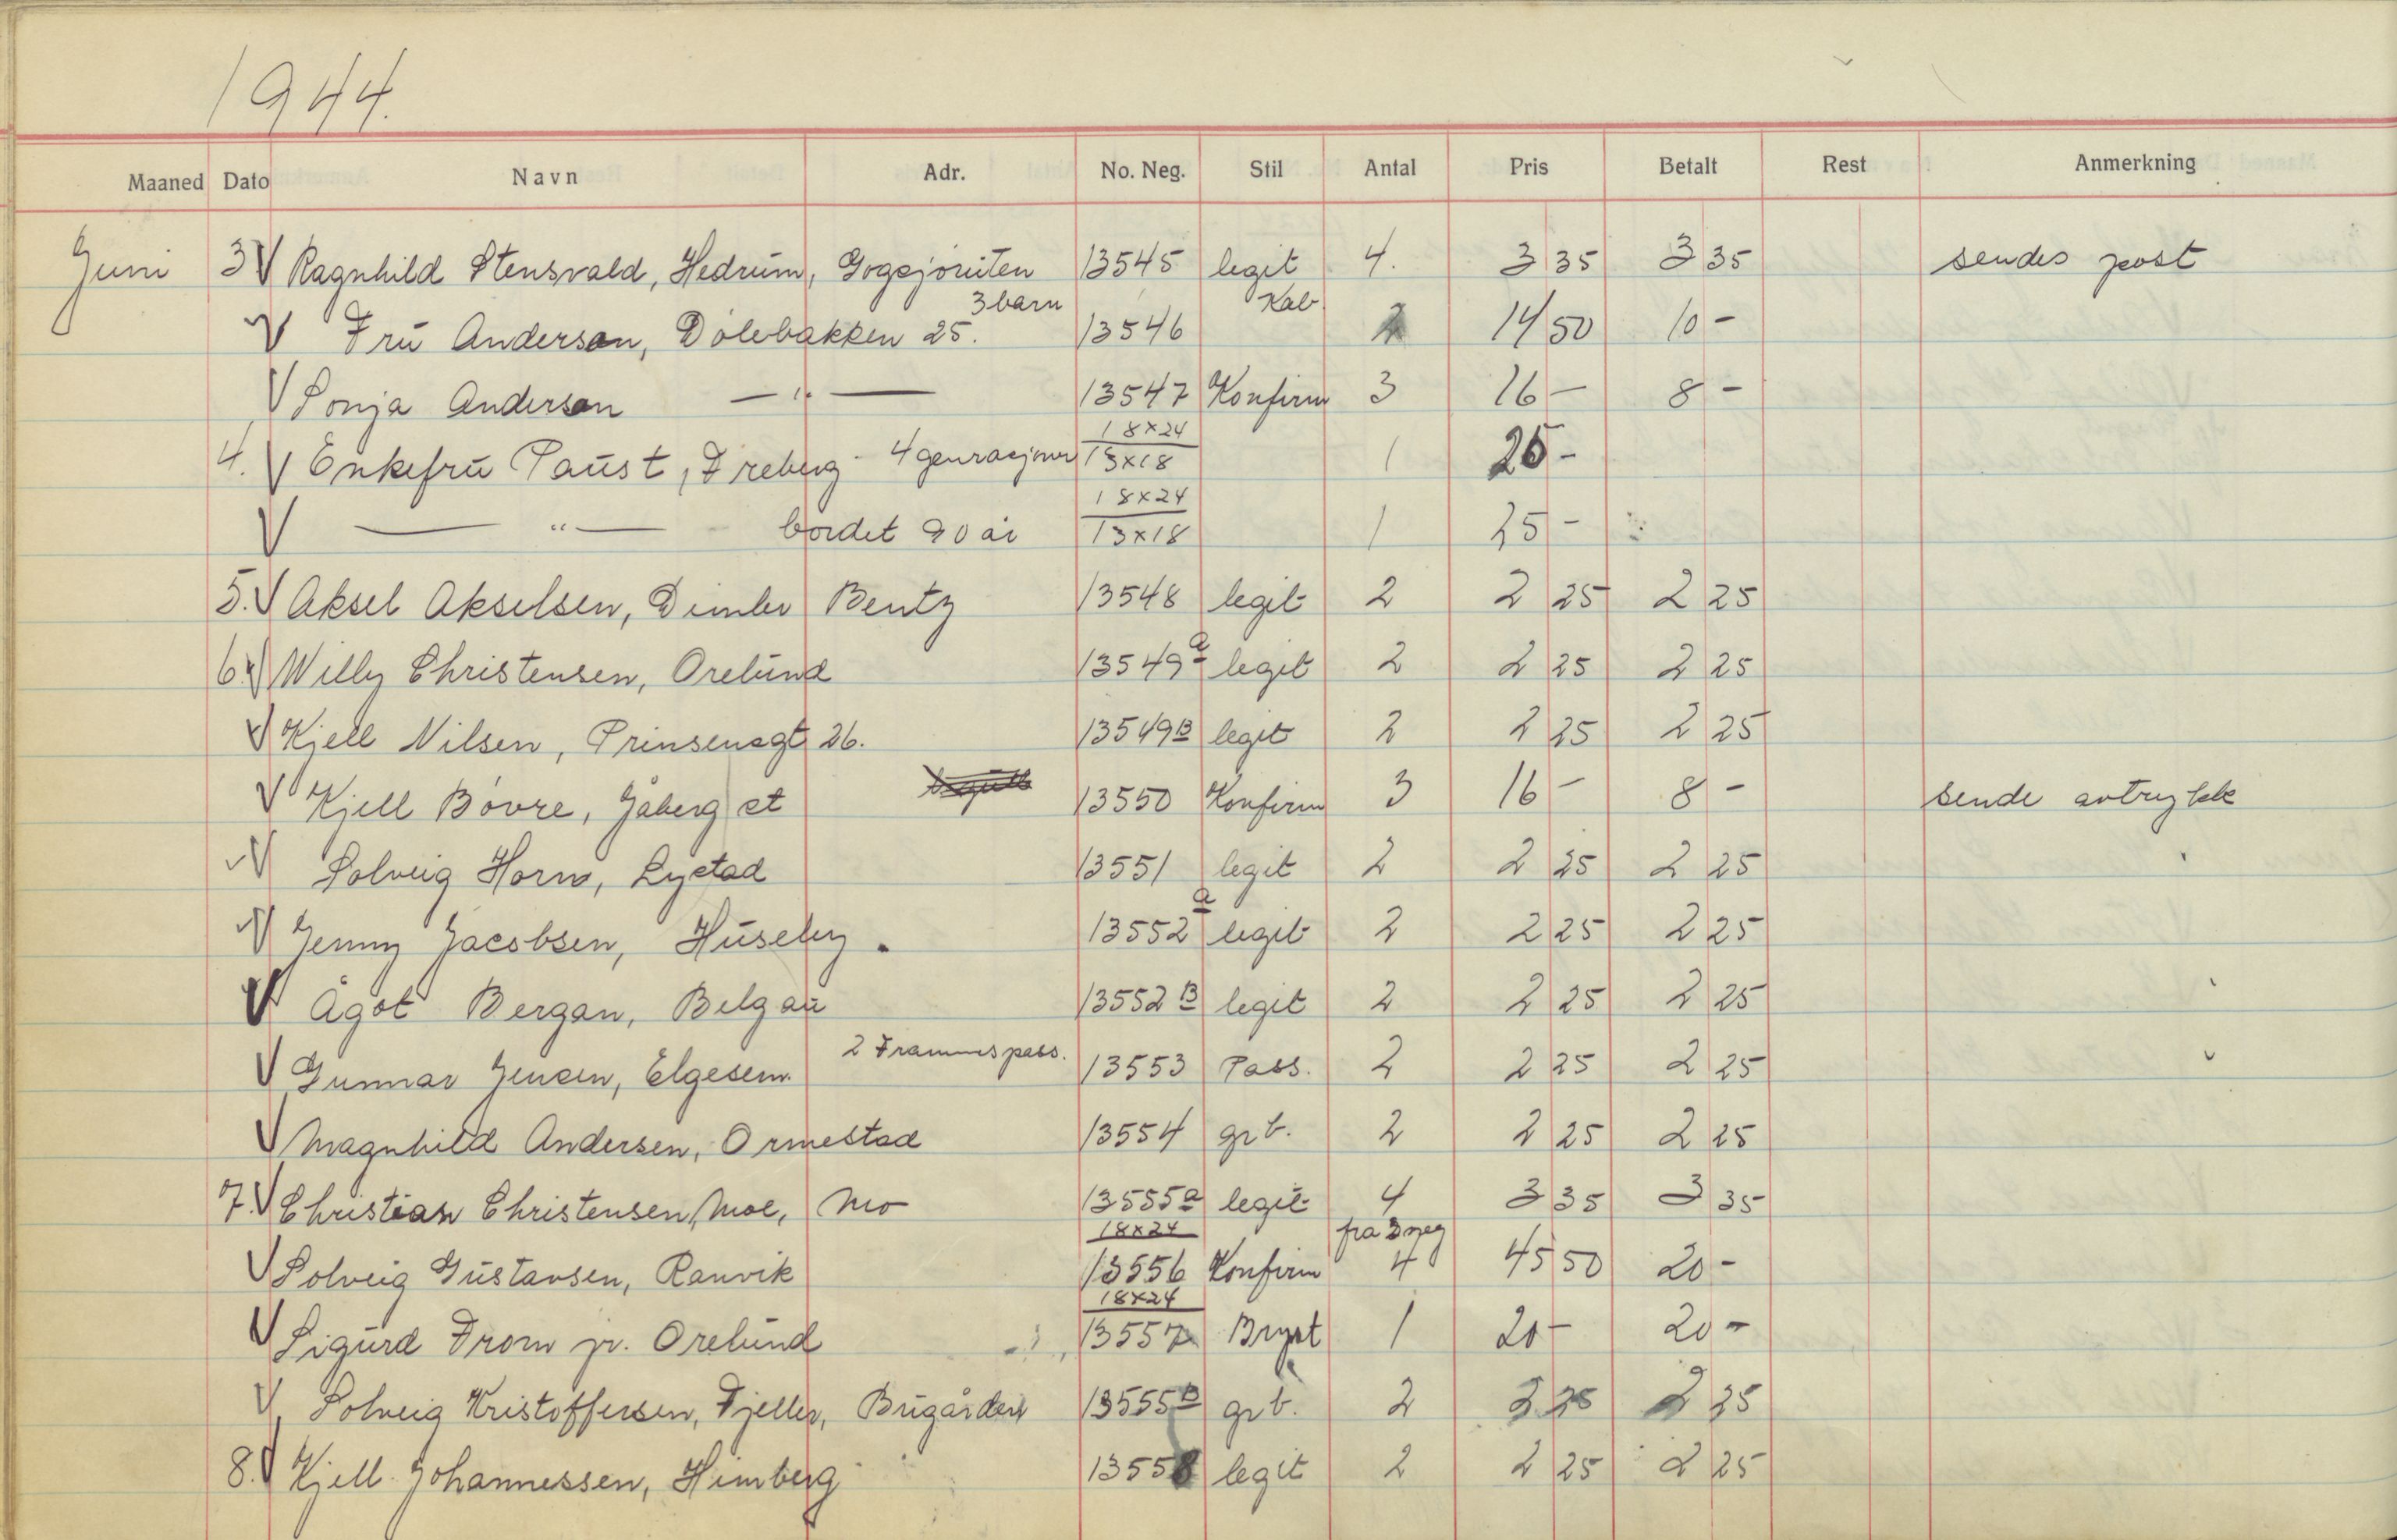 1944.
Maaned Dato Navn Adr. No. Neg. Stil Antal Pris Betalt Rest Anmerkning
Juni 3 V Ragnhild Stensvald, Hedrum, Gogsjoruten 13545 legit 4. 3 35 3 35 sendes post
V Fru Anderson, Dølebakken 25. 3 barn 13546 Kab. 2 14 50 10 -
V Sonja Anderson — " — 13547 Konfirm 3 16 - 8 -
4. V Enkefru Paust, Freberg 4 genrasjoner 18x24 13x18 1 25 -
V — " — bordet 90 år 18x24 13x18 1 25 -
5. V Aksel Akselsen, Dimler Bentz 13548 legit 2 2 25 2 25
6. V Willy Christensen, Orelund 13549a legit 2 2 25 2 25
V Kjell Nilsen, Prinsensgt 26. 13549B legit 2 2 25 2 25
V Kjell Bøvre, Jåberg st 13550 Konfirm 3 16 - 8 - sende avtrykk
V Solveig Horn, Lystad 13551 legit 2 2 25 2 25
V Jenny Jacobsen, Huseby. 13552a legit 2 2 25 2 25
V Ågot Bergan, Belgau 13552B legit 2 2 25 2 25
V Gunnar Jensen, Elgesem. 2 Frammspass. 13553 Pass. 2 2 25 2 25
V Magnhild Andersen, Ormestad 13554 grb. 2 2 25 2 25
7. V Christian Christensen, Moe, Mo 13555a legit 4 3 35 3 35
V Solveig Gustavsen, Ranvik 18x24 13556 Konfirm fra 3 neg 4 45 50 20 -
V Sigurd From jr. Orelund 18x24 13557 Bryst 1 20 - 20 -
V Solveig Kristoffersen, Fjeller, Brugården 13555B grb. 2 2 25 2 25
8. V Kjell Johannessen, Himberg 13558 legit 2 2 25 2 25